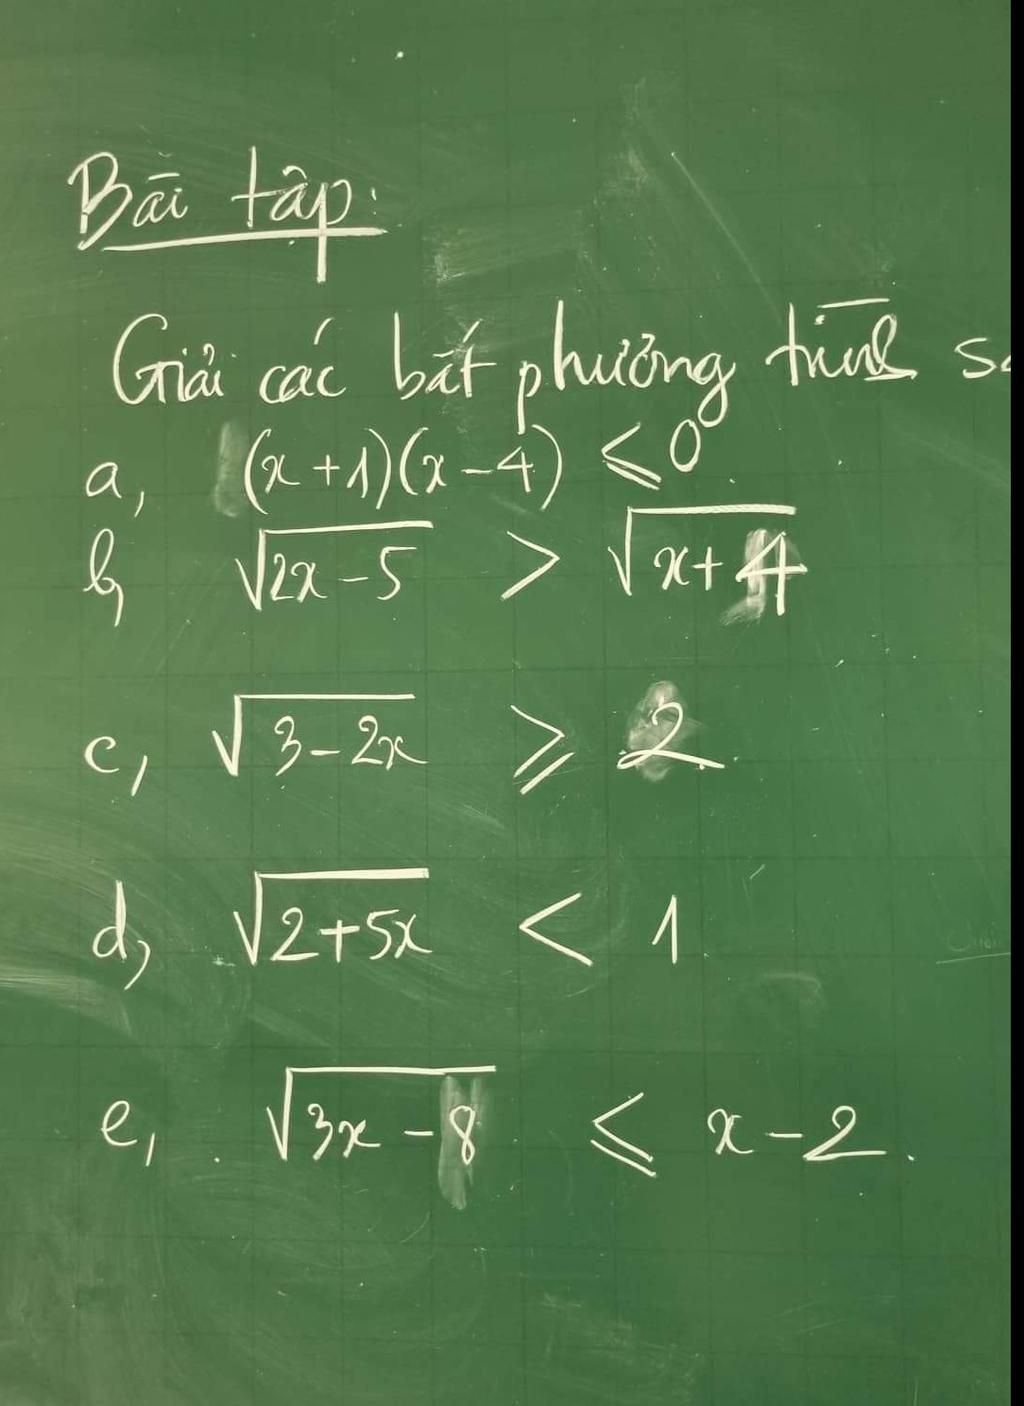 Bài tập:
Giải các bất phương trình
a, (x+1)(x-4) ⩽ 0
b, √(2x-5) > √(x+4)
c, √(3-2x) ⩾ 2
d, √(2+5x) < 1
e, √(3x-8) ⩽ x-2.